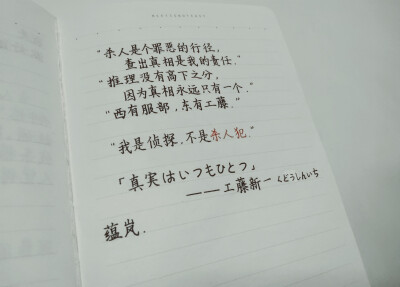 “杀人是个罪恶的行径，
查出真相是我的责任。”
“推理没有高下之分，
因为真相永远只有一个。”
“西有服部，东有工藤。”
“我是侦探，不是杀人犯。”
「真実はいつもひとつ」
——工藤新一 くどうしんいち
蕴岚.